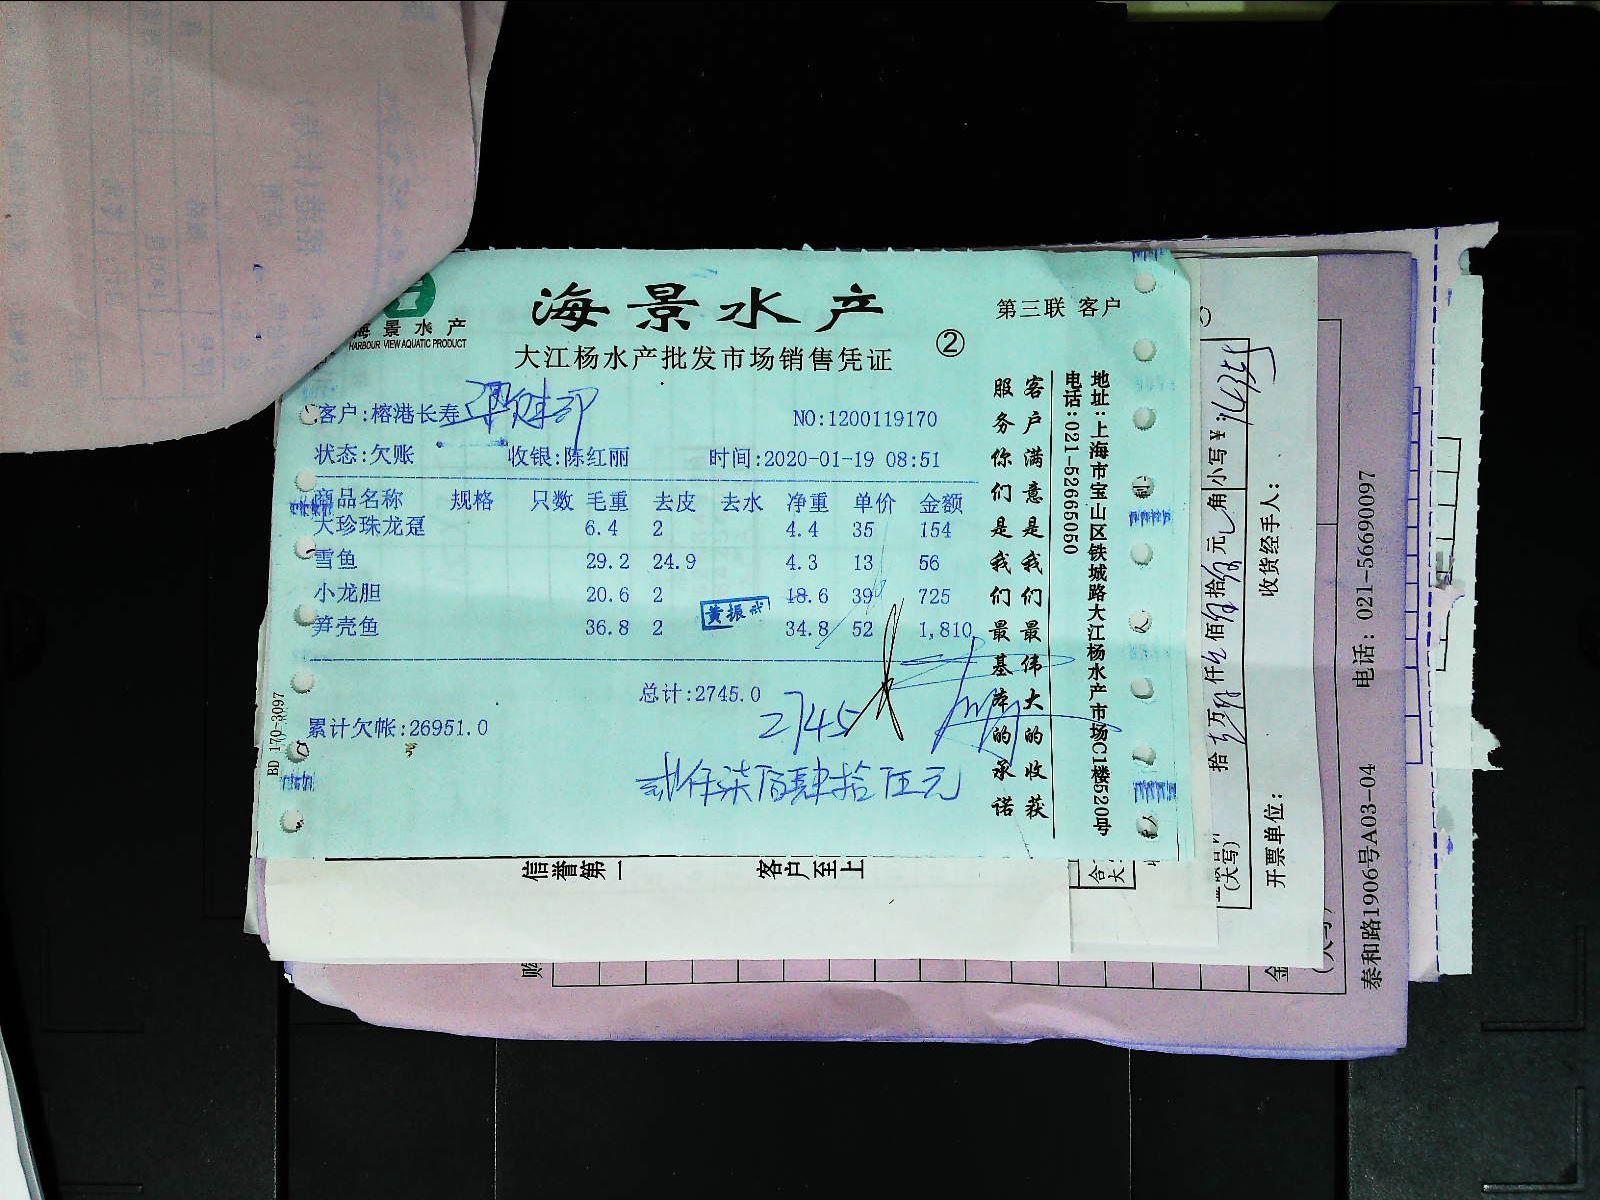 海景水产
第三联 客户
海 景 水 产
HARBOUR VIEW AQUATIC PRODUCT
大江杨水产批发市场销售凭证
②
客户:榕港长寿
NO:1200119170
状态:欠账 收银:陈红丽 时间:2020-01-19 08:51
商品名称 规格 只数 毛重 去皮 去水 净重 单价 金额
大珍珠龙趸 6.4 2 4.4 35 154
雪鱼 29.2 24.9 4.3 13 56
小龙胆 20.6 2 18.6 39 725
笋壳鱼 36.8 2 34.8 52 1,810
总计:2745.0
2745
累计欠帐:26951.0
贰仟柒佰肆拾伍元
客户满意是我们最伟大的收获
服务你们是我们最基本的承诺
地址:上海市宝山区铁城路大江杨水产市场C1楼520号
电话:021-52665050
BD 170-3097
信誉第一 客户至上
(大写)
拾 万 仟 佰 拾 元 角
小写¥
开票单位:
收货经手人:
泰和路1906号A03-04 电话: 021-56690097